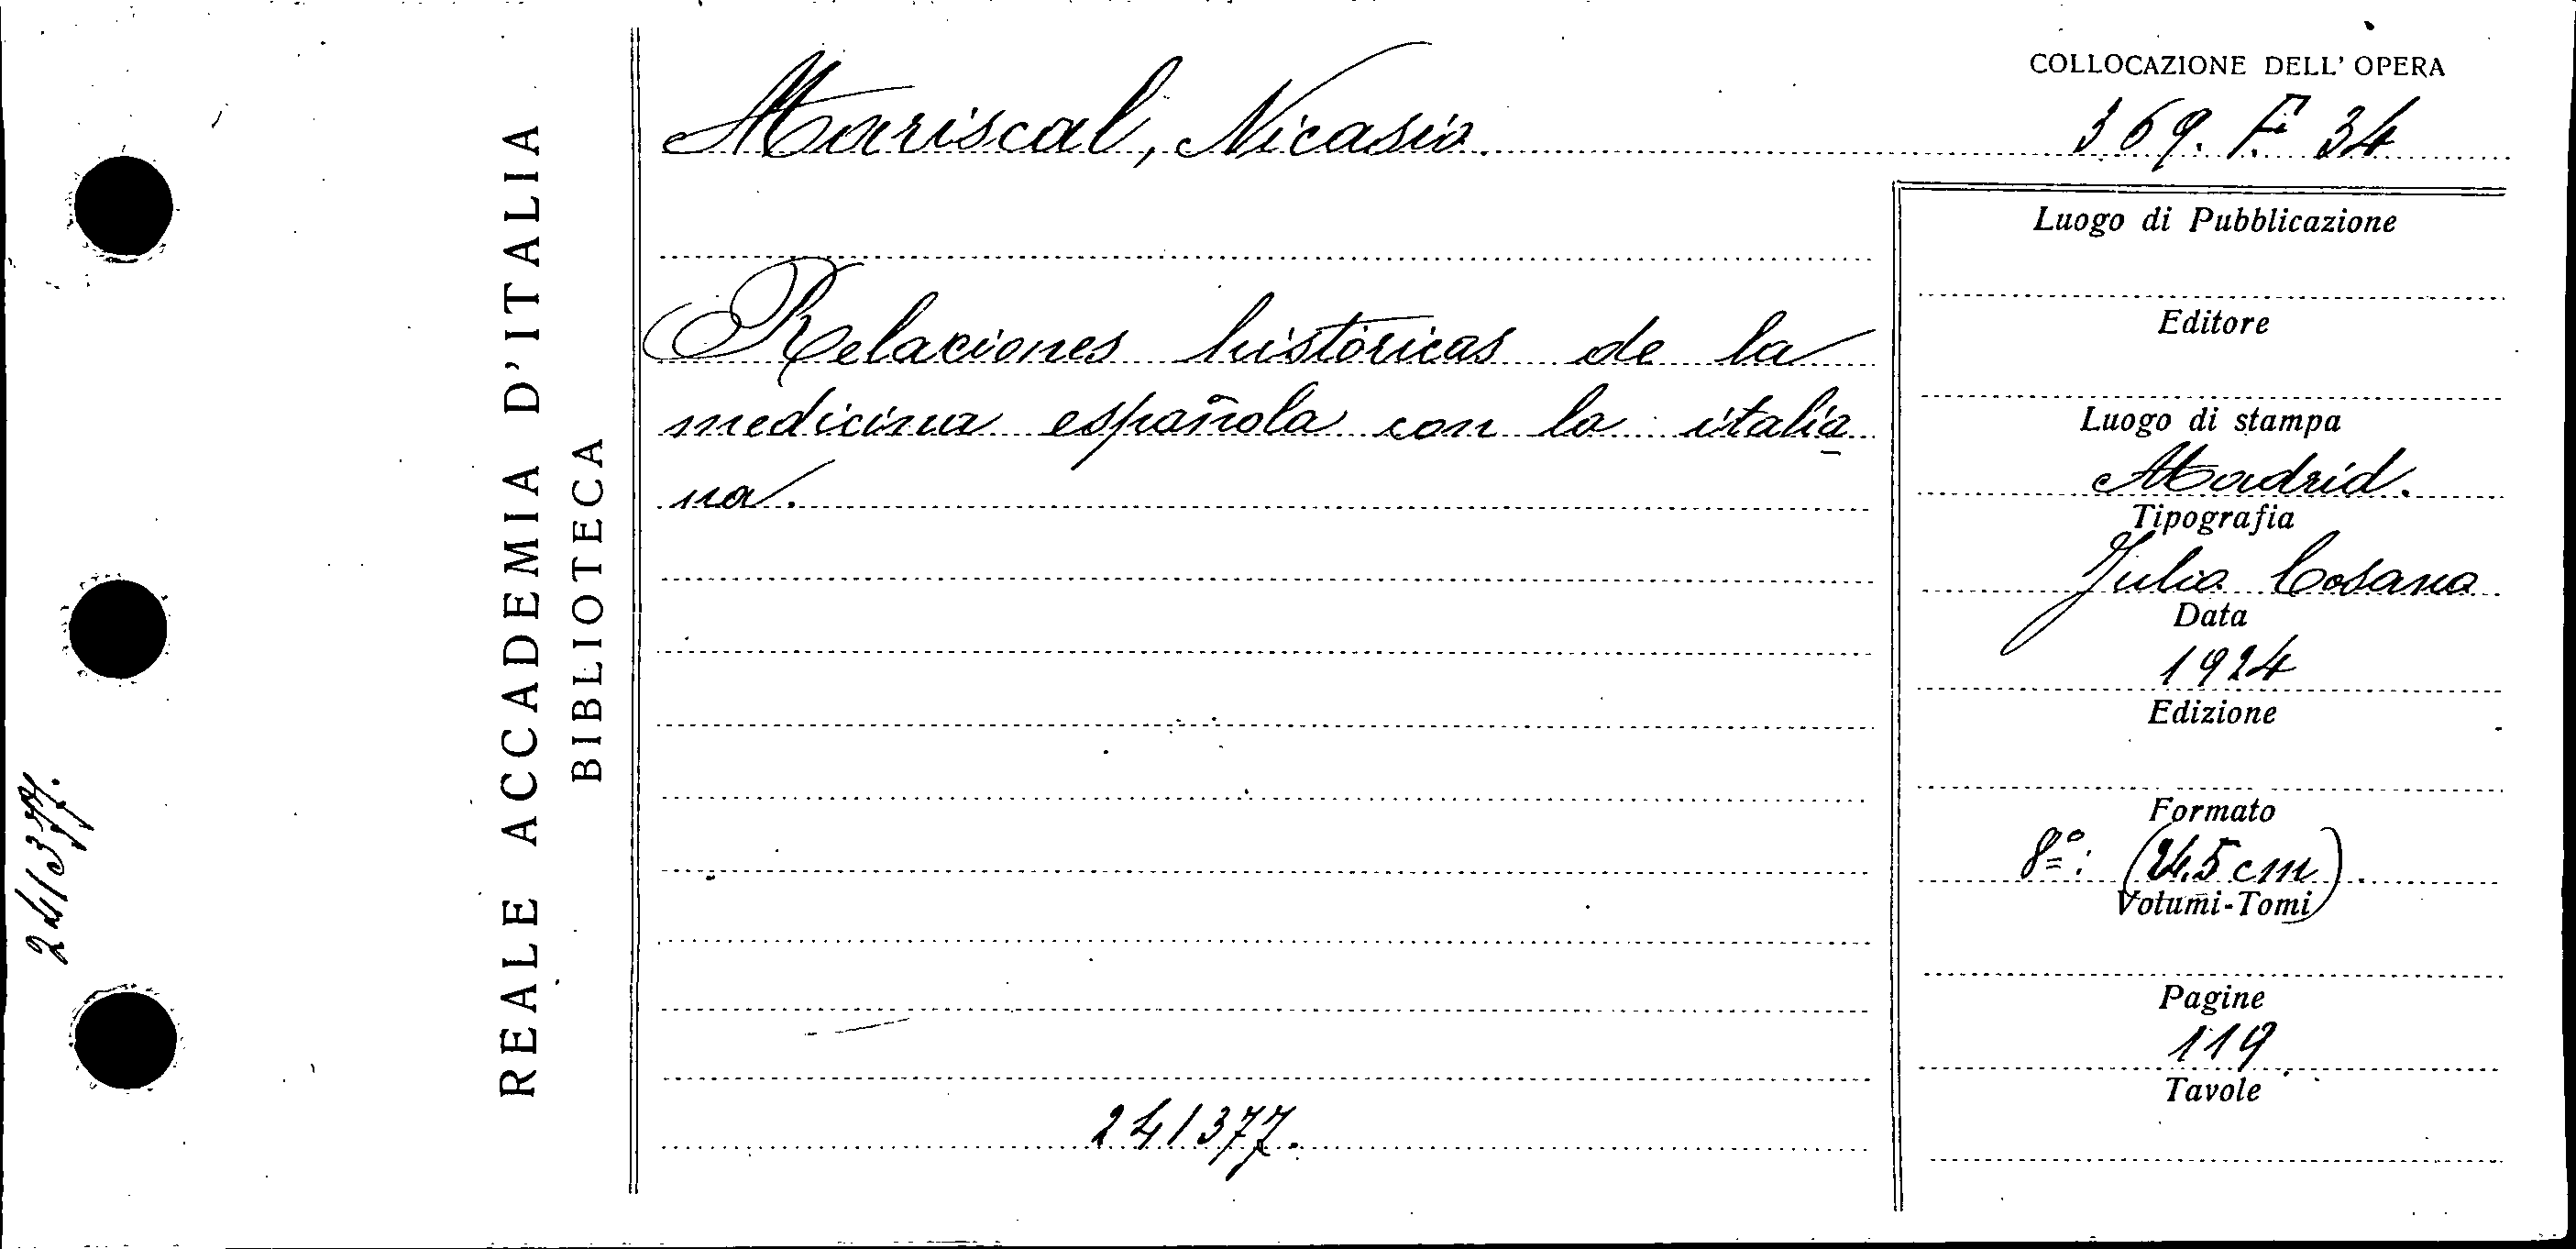 COLLOCAZIONE DELL' OPERA
Mariscal, Nicasio.
369. F. 34
REALE ACCADEMIA D'ITALIA
BIBLIOTECA
241377.
Relaciones históricas de la
medicina española con la italia
na.
241377.
Luogo di Pubblicazione
Editore
Luogo di stampa
Madrid.
Tipografia
Julio Cosano
Data
1924
Edizione
Formato
8º: (24,5 cm).
Volumi-Tomi
Pagine
119
Tavole